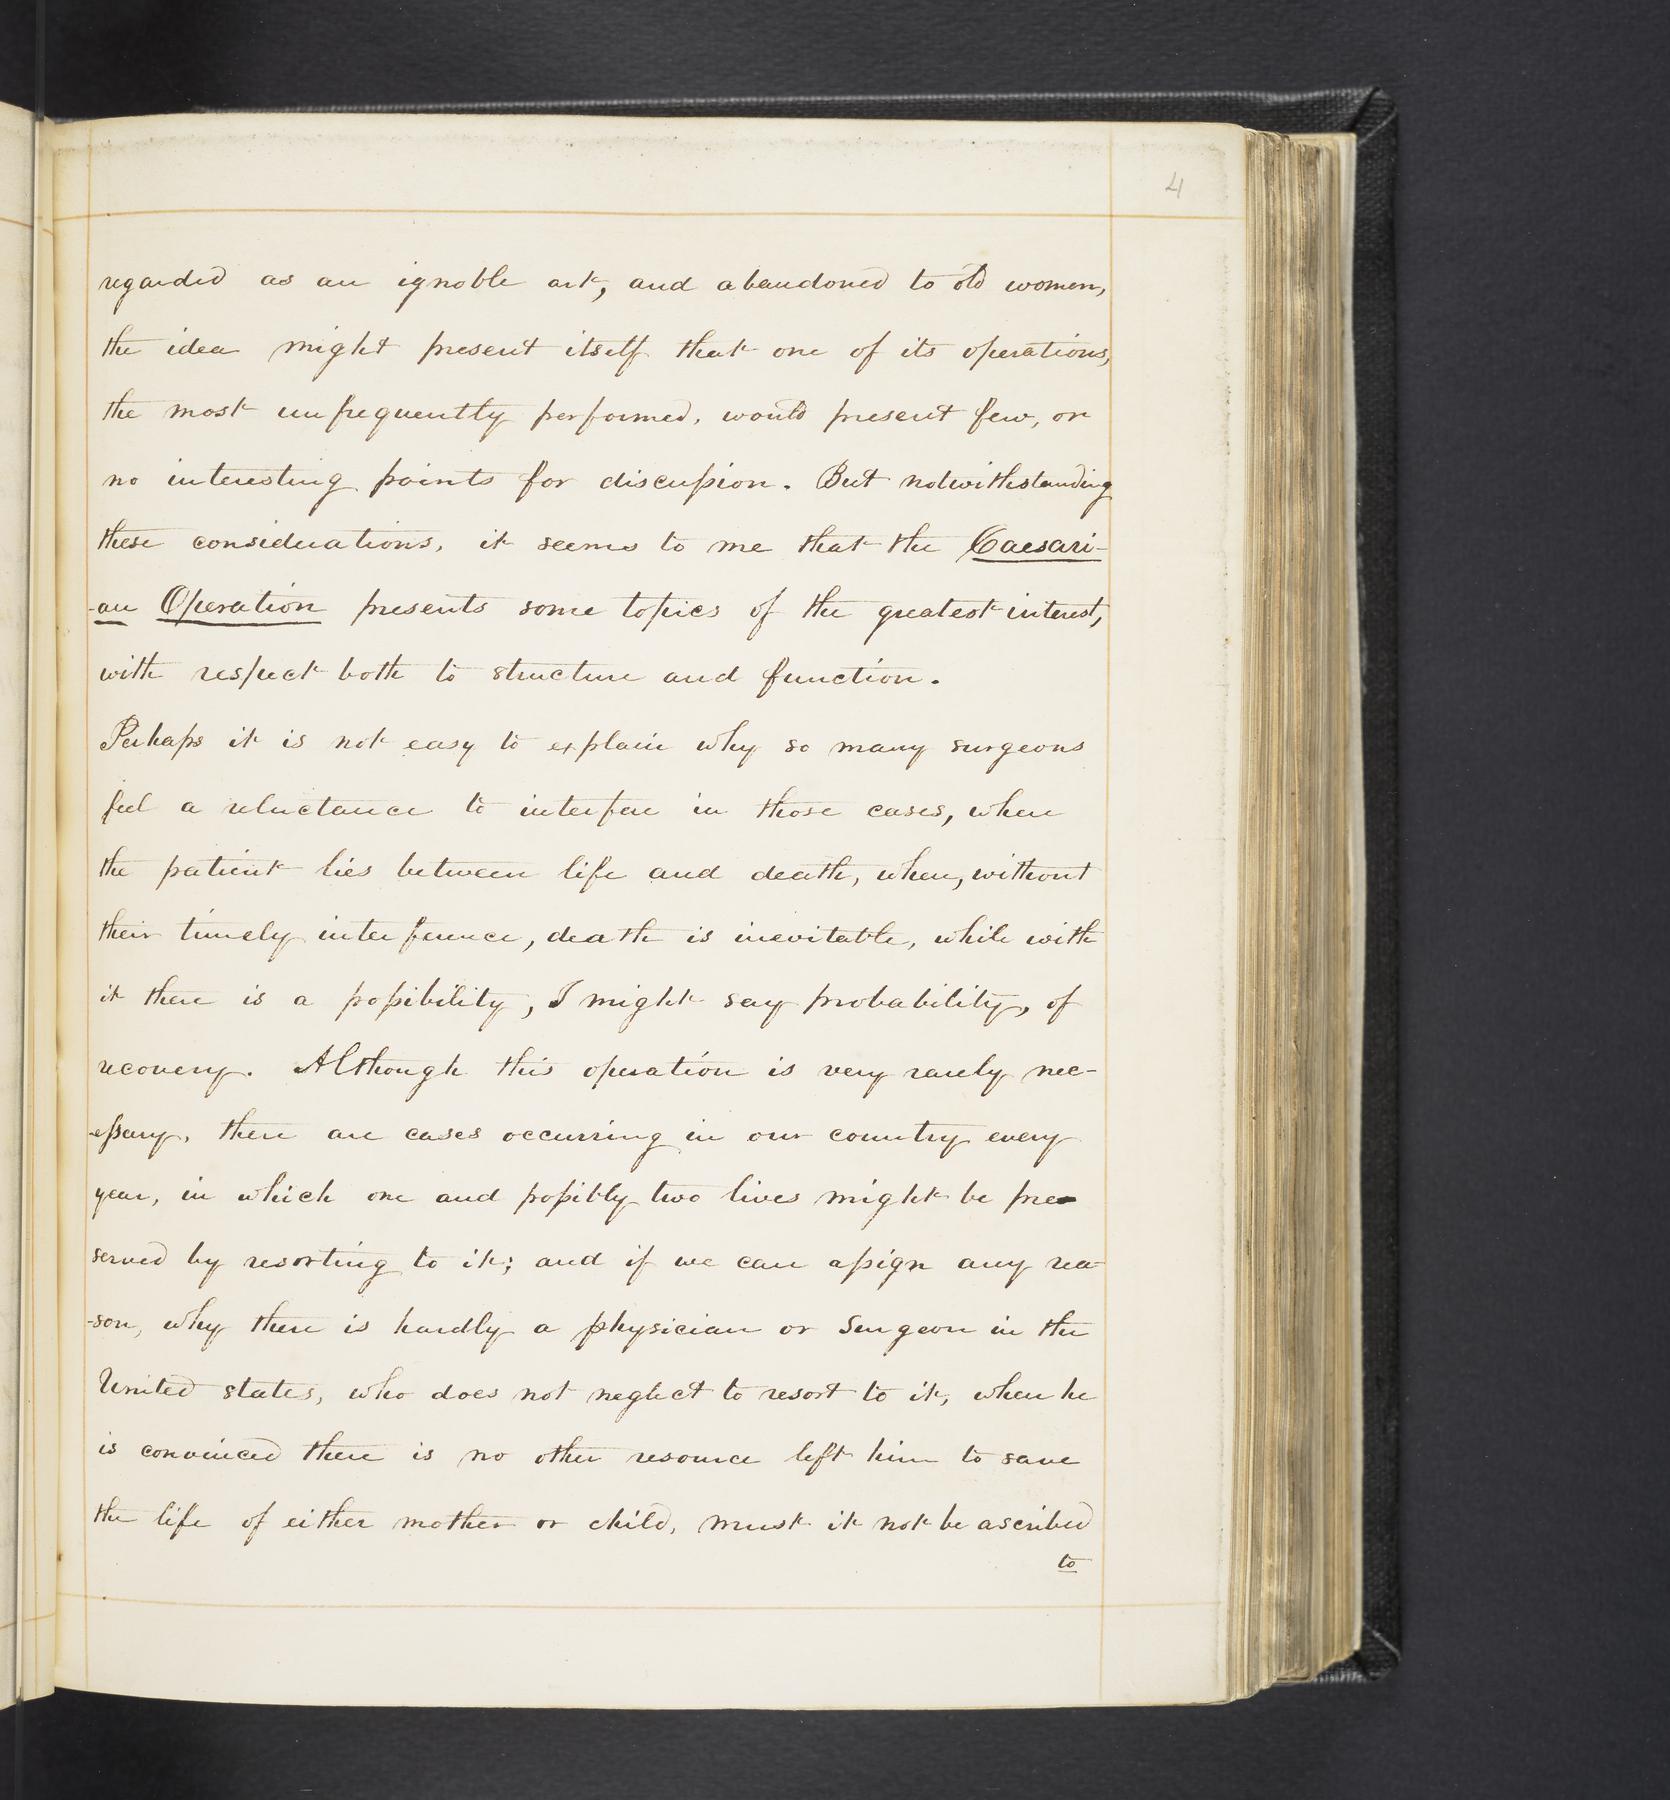 4
regarded as an ignoble art, and abandoned to old women,
the idea might present itself that one of its operations,
the most unfrequently performed, would present few, or
no interesting points for discussion. But notwithstanding
these considerations, it seems to me that the Caesari-
-an Operation presents some topics of the greatest interest,
with respect both to structure and function.
Perhaps it is not easy to explain why so many surgeons
feel a reluctance to interfere in those cases, when
the patient lies between life and death, when, without
their timely interference, death is inevitable, while with
it there is a possibility, I might say probability, of
recovery. Although this operation is very rarely nec-
-essary, there are cases occurring in our country every
year, in which one and possibly two lives might be pre-
served by resorting to it; and if we can assign any rea-
-son, why there is hardly a physician or Surgeon in the
United states, who does not neglect to resort to it, when he
is convinced there is no other resource left him to save
the life of either mother or child, must it not be ascribed
to